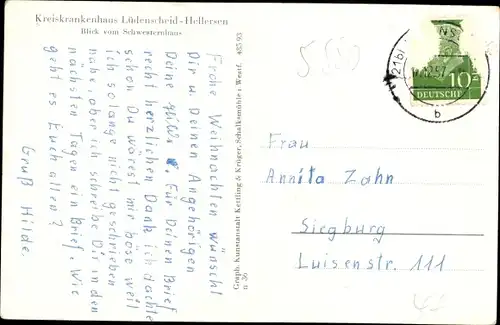 Kreiskrankenhaus Lüdenscheid-Hellersen
Blick vom Schwesternhaus
Frohe Weihnachten wünscht
Dir u Deinen Angehörigen
Deine Hilde. Für Deinen Brief
recht herzlichen Dank ich dachte
schon Du wärest mir böse weil
ich solange nicht geschrieben
habe, aber ich schreibe Dir in den
nächsten Tagen ein Brief. Wie
geht es Euch allen?
Gruß Hilde
Graph. Kunstanstalt Kettling & Krüger, Schalksmühle i. Westf. 485/93
n 36
(21b)
b
10
DEUTSCHE
Frau
Annita Zahn
Siegburg
Luisenstr. 111